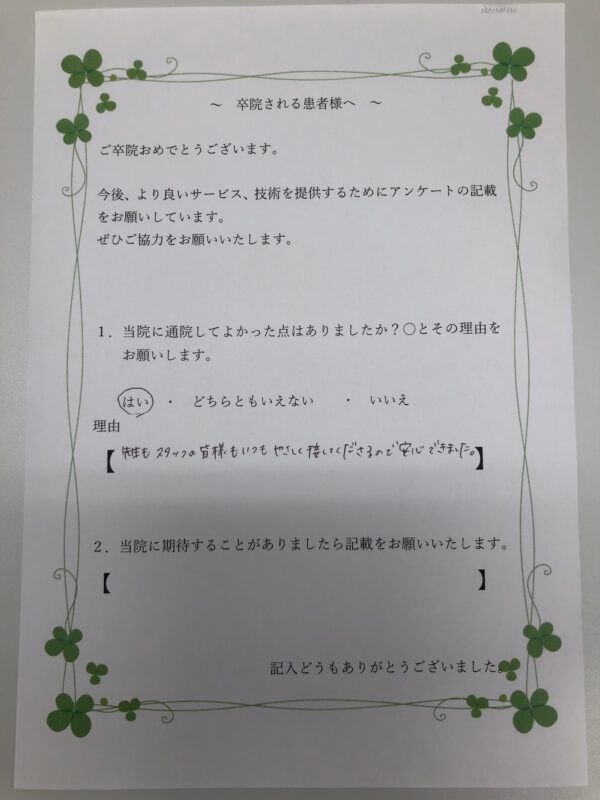 ～　卒院される患者様へ　～
ご卒院おめでとうございます。
今後、より良いサービス、技術を提供するためにアンケートの記載
をお願いしています。
ぜひご協力をお願いいたします。
１．当院に通院してよかった点はありましたか？〇とその理由を
お願いします。
はい　・　どちらともいえない　　・　いいえ
理由
【先生も スタッフの皆様もいつも やさしく接してくださるので安心できました。】
２．当院に期待することがありましたら記載をお願いいたします。
【　　　　　　　　　　　　　　　　　　　　】
記入どうもありがとうございました。